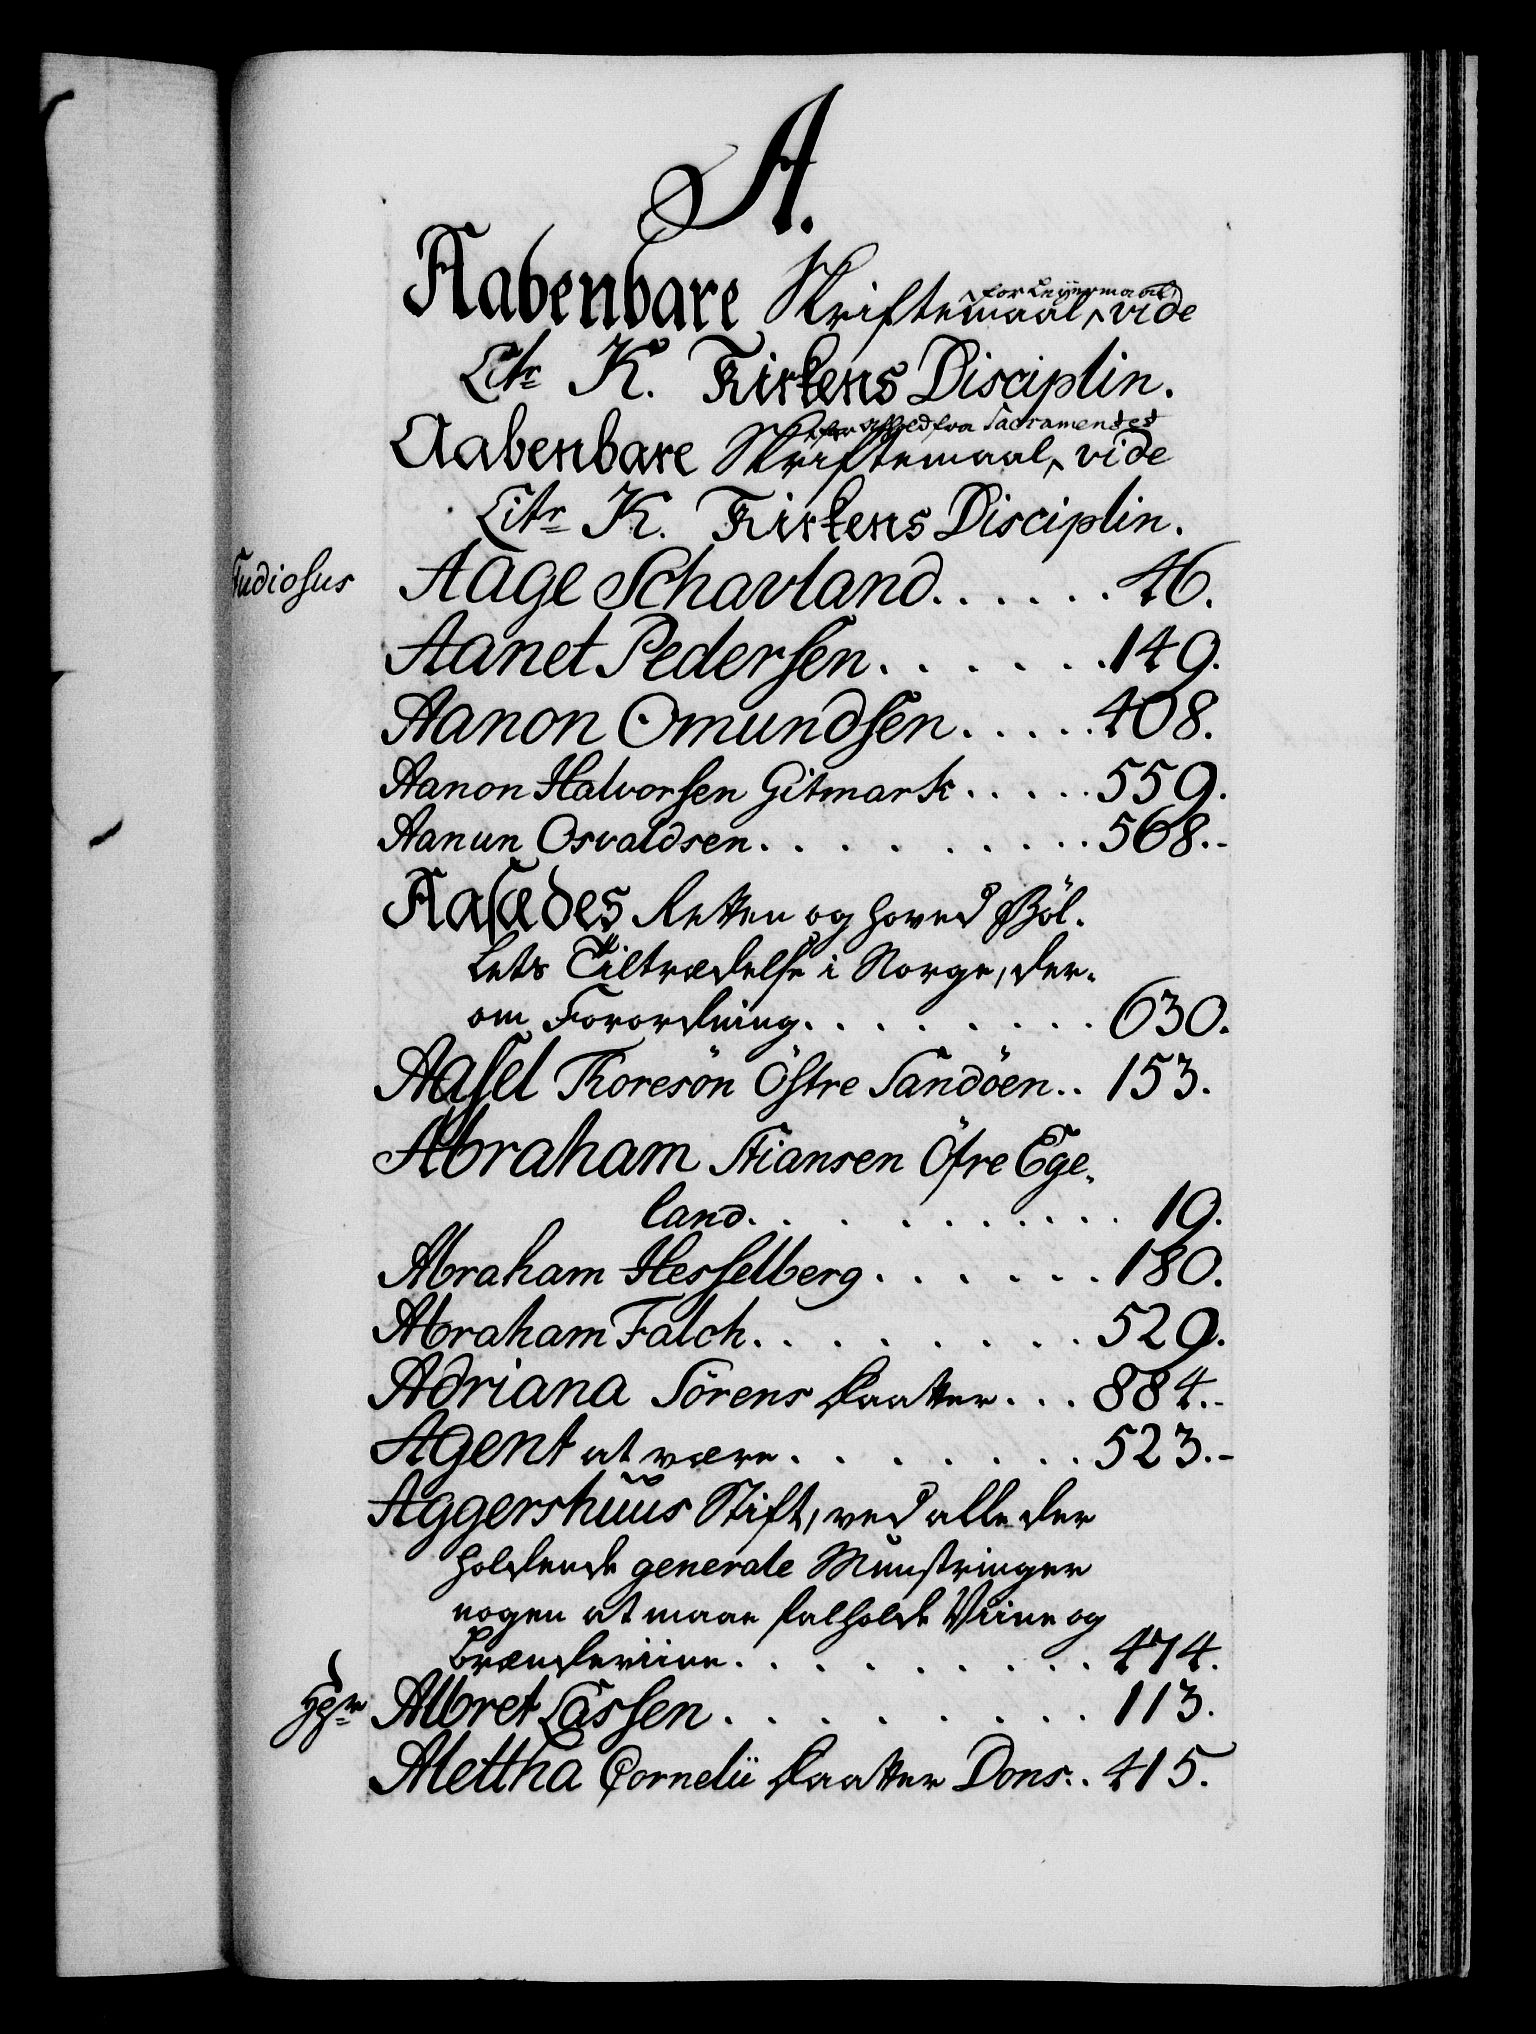 A.
Aabenbare Skriftemaal ^for Leyermaal, vide
Litr K. Kirkens Disciplin.
Aabenbare Skriftemaal ^for afhold fra Sacramentet, vide
Litr K. Kirkens Disciplin.
Studiosus Aage Schavland. . . . . . 46.
Aanet Pedersen. . . . . . . 149.
Aanon Omundsen. . . . . 408.
Aanon Halvorsen Gitmark. . . . . 559.
Aanun Osvaldsen. . . . . . . . . 568.-
Aasædes Retten og hoved Böl-
lets Tiltrædelse i Norge, der-
om Forordning. . . . . . . . . 630.
Aasel Thoresön Östre Sandöen. . 153.
Abraham Stiansen Öfre Ege-
land. . . . . . . . . . . 19.
Abraham Hesselberg. . . . . . . 180.
Abraham Falch. . . . . . . . . 529.
Adriana Sörens daatter. . . 884.-
Agent at være. . . . . . . . 523.-
Aggershuus Stift, ved alle der
holdende generale Munstringer
nogen at maae falholde Viine og
Brændeviine. . . . . . . . . . 474.
Hgr Albret Lassen. . . . . . . . . 113.
Alettha Cornelii daatter Dons. . 415.